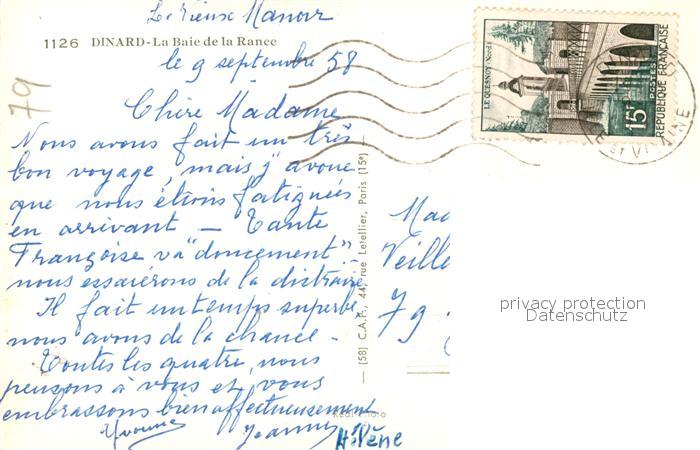 Le Vieux Manoir
1126 DINARD - La Baie de la Rance
le 9 septembre 58
79
Chère Madame
Nous avons fait un très
bon voyage, mais j'avoue
que nous étions fatiguées
en arrivant — Tante
Françoise va "doucement".
nous essaierons de la distraire
Il fait un temps superbe
nous avons de la chance -
Toutes les quatre, nous
pensons à vous et vous
embrassons bien affectueusement
Yvonne Jeanne Hélène
(58) C.A.P., 44, rue Letellier, Paris (15e)
LE QUESNOY (Nord)
15F
POSTES
RÉPUBLIQUE FRANÇAISE
ET VILAINE
Mad
Veill
79
privacy protection
Datenschutz